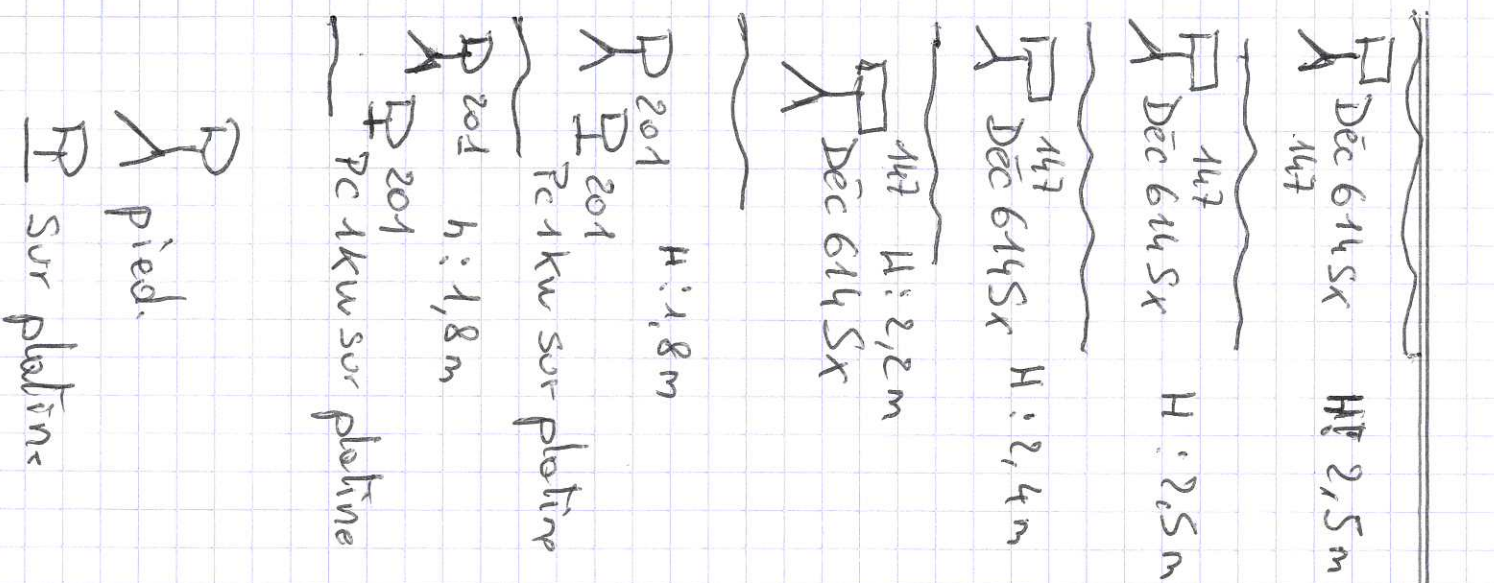 Déc 614 Sx H: 2,5 m
147
147
Déc 614 Sx H : 2,5 m
147
Déc 614 Sx H : 2,4 m
147 H : 2,2 m
Déc 614 Sx
H : 1,8 m
201
201
Pc 1kw sur platine
201 h : 1,8 m
201
Pc 1kw sur platine
pied.
Sur platine